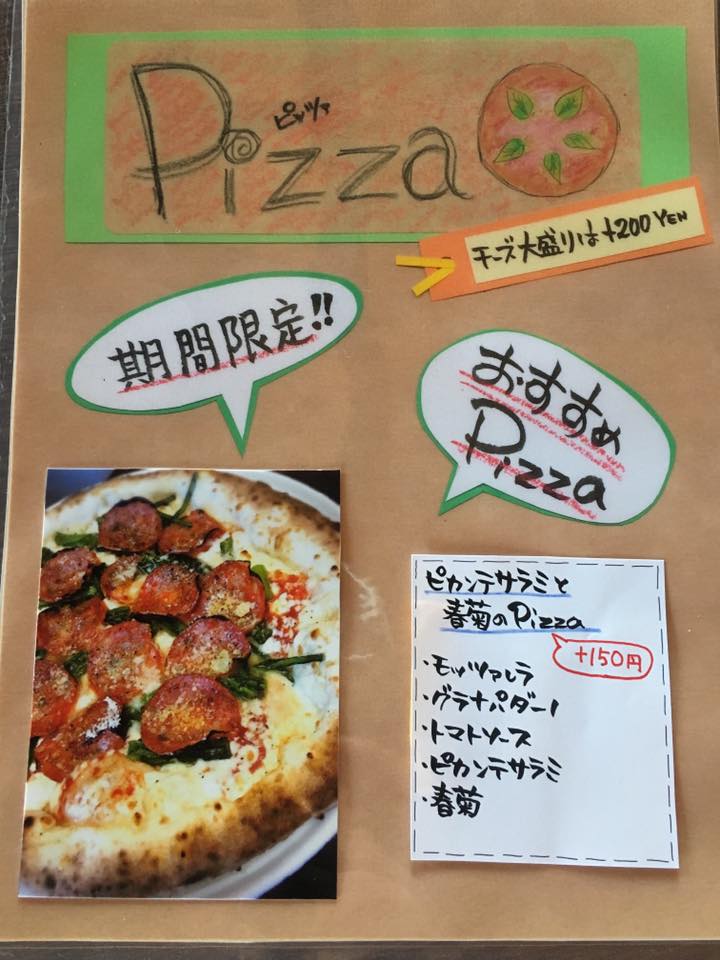 Pizza
ピッツァ
チーズ大盛りは+200YEN
期間限定!!
おすすめ
Pizza
ピカンテサラミと
春菊のPizza
+150円
・モッツァレラ
・グラナパダーノ
・トマトソース
・ピカンテサラミ
・春菊